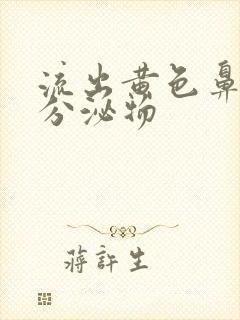 流出黄色鼻
分泌物
蒋許生